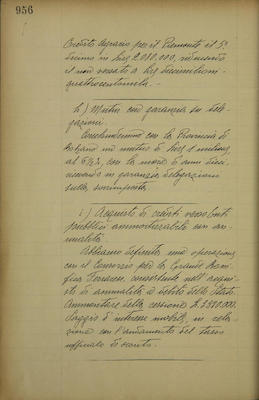 956
Credito Agrario per il Piemonte il 5°
decimo in Lire 2.080.000, riducendo
il non versato a Lire
quattrocentomila. -
h) Mutui con garanzia su dele-
gazioni.
Concluderemo con la Provincia di
Bolzano un mutuo di Lire 1 milione
al 6½%, con la mora di anni dieci,
avendo in garanzia delegazioni
sulla sovrimposta.
i) Acquisto di crediti verso Enti
pubblici ammortizzabili con an-
nualità.
Abbiamo definito una operazione
con il Consorzio per la Grande Boni-
fica Ferrarese, consistente nell'acqui-
sto di annualità a debito dello Stato.
Ammontare della cessione L. 2.580.000.
Saggio d'interesse mobile, in rela-
zione con l'andamento del tasso
ufficiale di sconto.